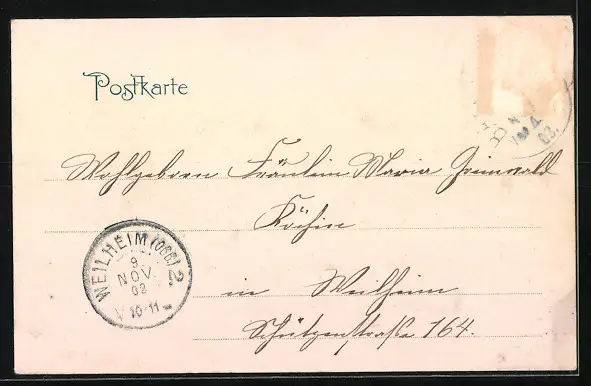 Postkarte
Wohlgeboren Fräulein Maria Grünwald
Köchin
WEILHEIM (OBB.) 2.
9.
NOV.
02
V 10-11
in Weilheim
Schützenstraße 164.